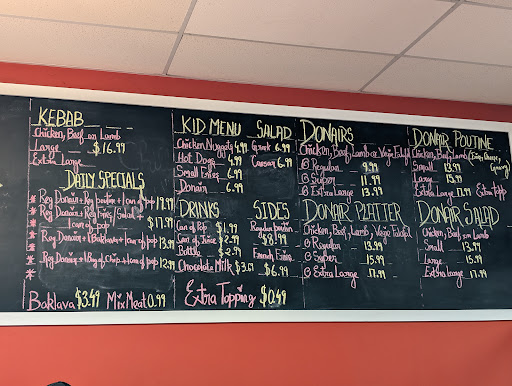 KEBAB
Chicken, Beef or Lamb
Large $16.99
Extra Large
DAILY SPECIALS
* Reg Donair + Reg Poutine + 1 can of pop 19.99
* Reg Donair + Reg Fries / Salad +
1 can of pop $17.99
* Reg Donair + 1 Baklava + 1 can of pop 13.99
* Reg Donair + 1 Bag of Chips + 1 can of pop 12.99
Baklava $3.49 Mix Meat 0.99
KID MENU
Chicken Nuggets 4.99
Hot Dogs 4.99
Small Fries 6.99
Donair 6.99
SALAD
Greek 6.99
Caesar 6.99
DRINKS
Can of Pop $1.99
Can of Juice $2.99
Bottle $2.99
Chocolate Milk $3.09
SIDES
Regular poutine
$8.99
French Fries
$6.99
Extra Topping $0.49
DONAIRS
Chicken, Beef, Lamb or Vegie Falafel
Regular 9.99
Super 11.99
Extra Large 13.99
DONAIR PLATTER
Chicken, Beef, Lamb, Vegie Falafel
Regular 13.99
Super 15.99
Extra Large 17.99
DONAIR POUTINE
Chicken, Beef, Lamb (Fries, Cheese, Gravy)
Small 13.99
Large 15.99
Extra Large 17.99 Extra Topp
DONAIR SALAD
Chicken, Beef or Lamb
Small 13.99
Large 15.99
Extra Large 17.99